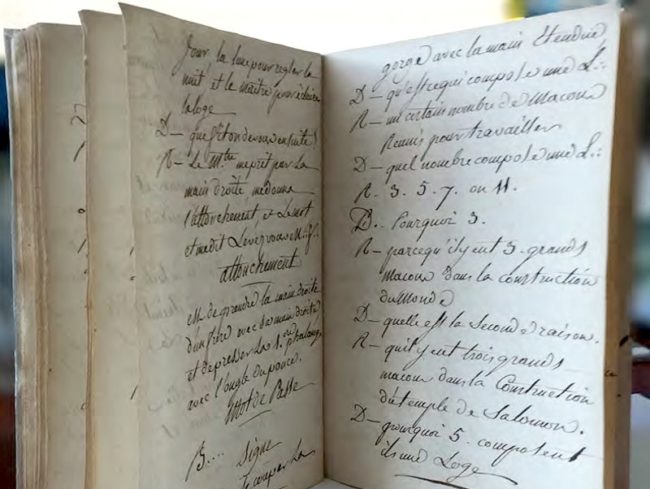 jour la lune pour regler la
nuit et le maitre pour éclairer
la loge
D — que fit on de vous ensuite?
R — Le Mtre me prit par la
main droite me donna
l'attouchement, et Le mot
et me dit Levez vous M∴ f∴
attouchement
est de prendre la main droite
d'un frère avec sa main droite
et de presser La 1re phalange
avec l'ongle du pouce.
Mot de Passe
B.... Signe
Le corps La
gorge avec la main Etendue
D — qu'est ce qui compose une L∴
R — un certain nombre de Macons
Reunis pour travailler
D — quel nombre compose une L∴
R. 3. 5. 7. ou 11.
D.. Pourquoi 3.
R — parcequ'il y eut 3. grands
macons dans la construction
du Monde
D — quelle est la Seconde raison.
R — qu'il y eut trois grands
macons dans la Construction
du temple de Salomon.
D — pourquoi 5. composent
ils une Loge